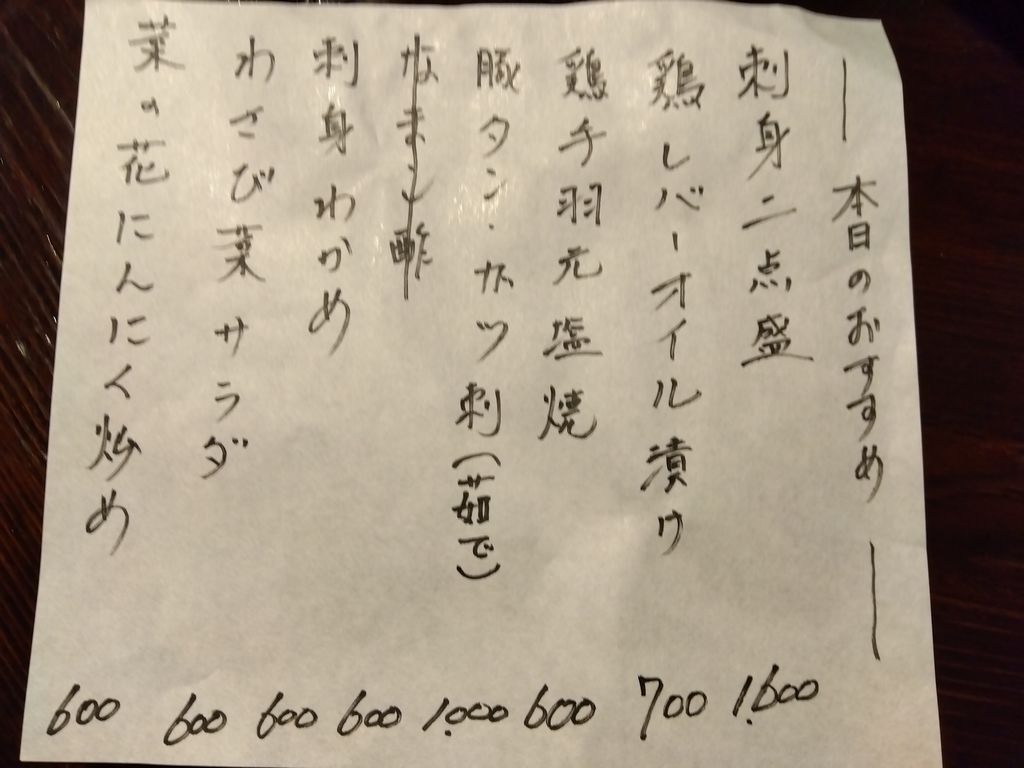 本日のおすすめ
刺身二点盛 1,600
鶏レバーオイル漬け 700
鶏手羽元塩焼 600
豚タン・ガツ刺(茹で) 1,000
なまこ酢 600
刺身わかめ 600
わさび菜サラダ 600
菜の花にんにく炒め 600